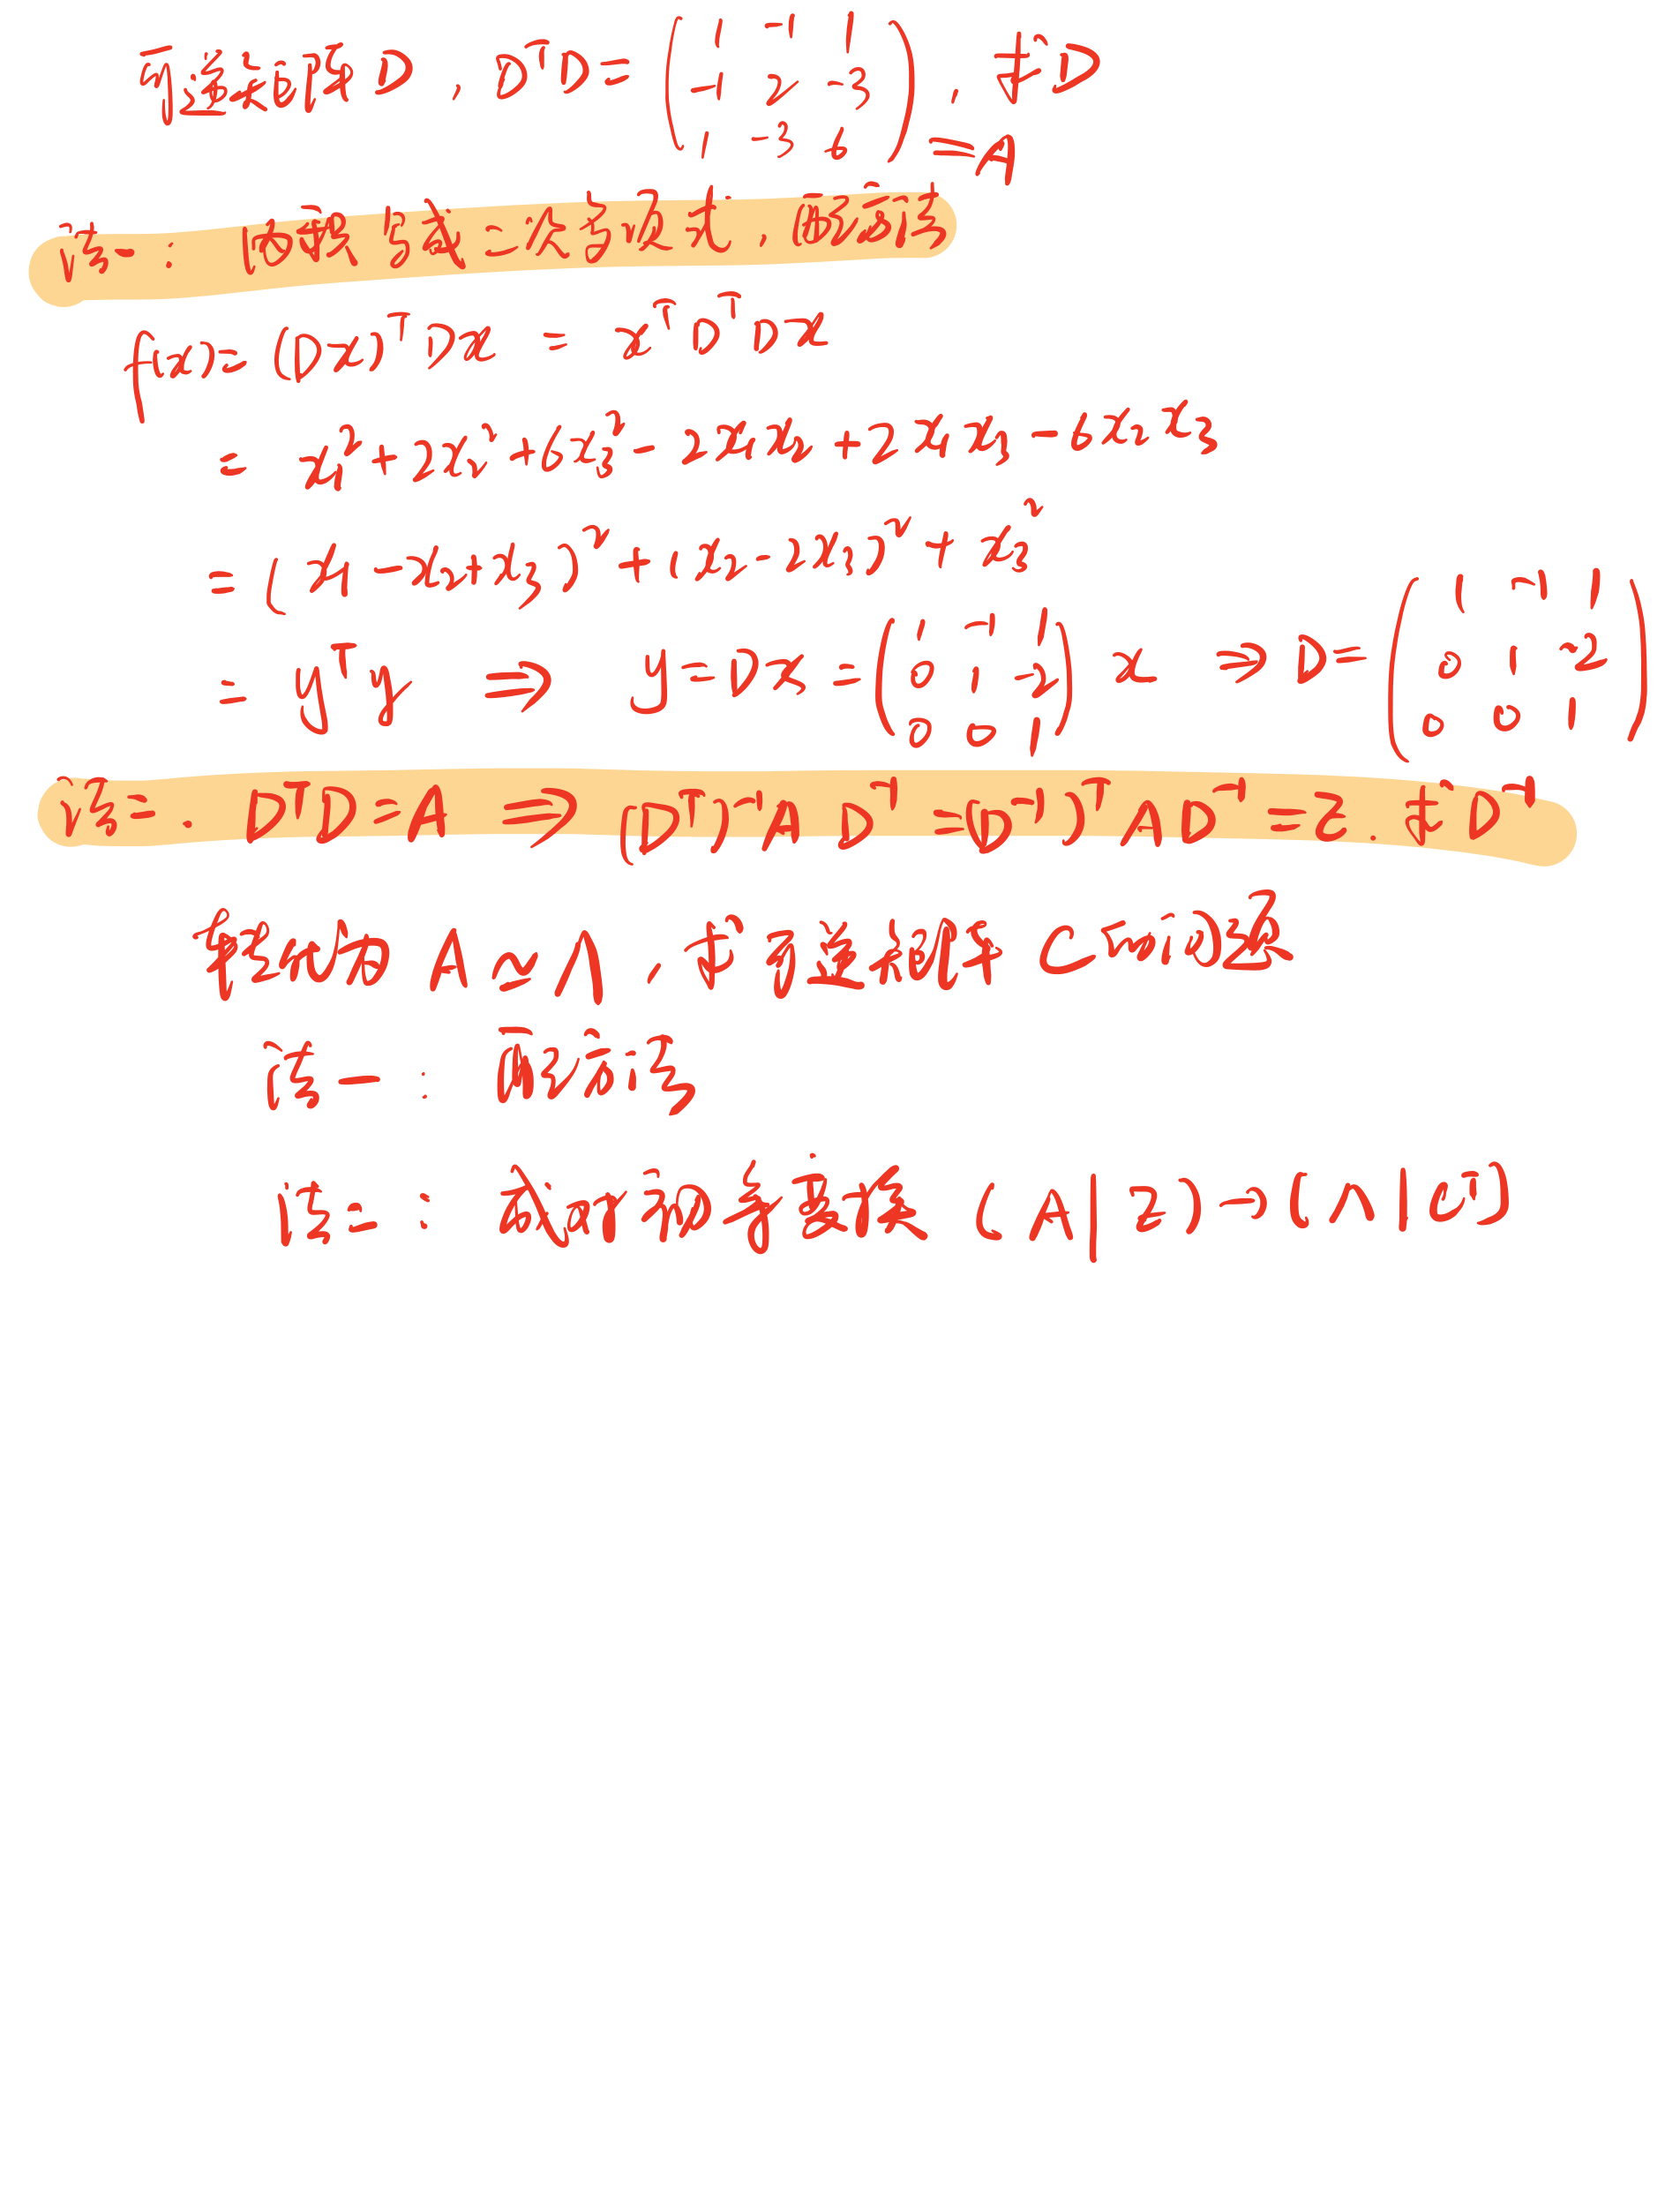 可逆矩阵D, DᵀD= ( 1 -1 1 ; -1 2 -3 ; 1 -3 6 ) =A, 求D
法一: 因式构造二次型形式, 配方法
f(x)= (Dx)ᵀDx = xᵀDᵀDx
= x₁²+2x₂²+6x₃²-2x₁x₂+2x₁x₃-6x₂x₃
= (x₁-x₂+x₃)²+(x₂-2x₃)²+x₃²
= yᵀy ⇒ y=Dx= ( 1 -1 1 ; 0 1 -2 ; 0 0 1 ) x ⇒ D= ( 1 -1 1 ; 0 1 -2 ; 0 0 1 )
法二. DᵀD=A ⇒ (Dᵀ)⁻¹AD⁻¹=(D⁻¹)ᵀAD⁻¹=E. 求D⁻¹
转化为 A≃Λ, 求可逆矩阵C的问题
法一: 配方法
法二: 初等变换 (A|E)→(Λ|Cᵀ)